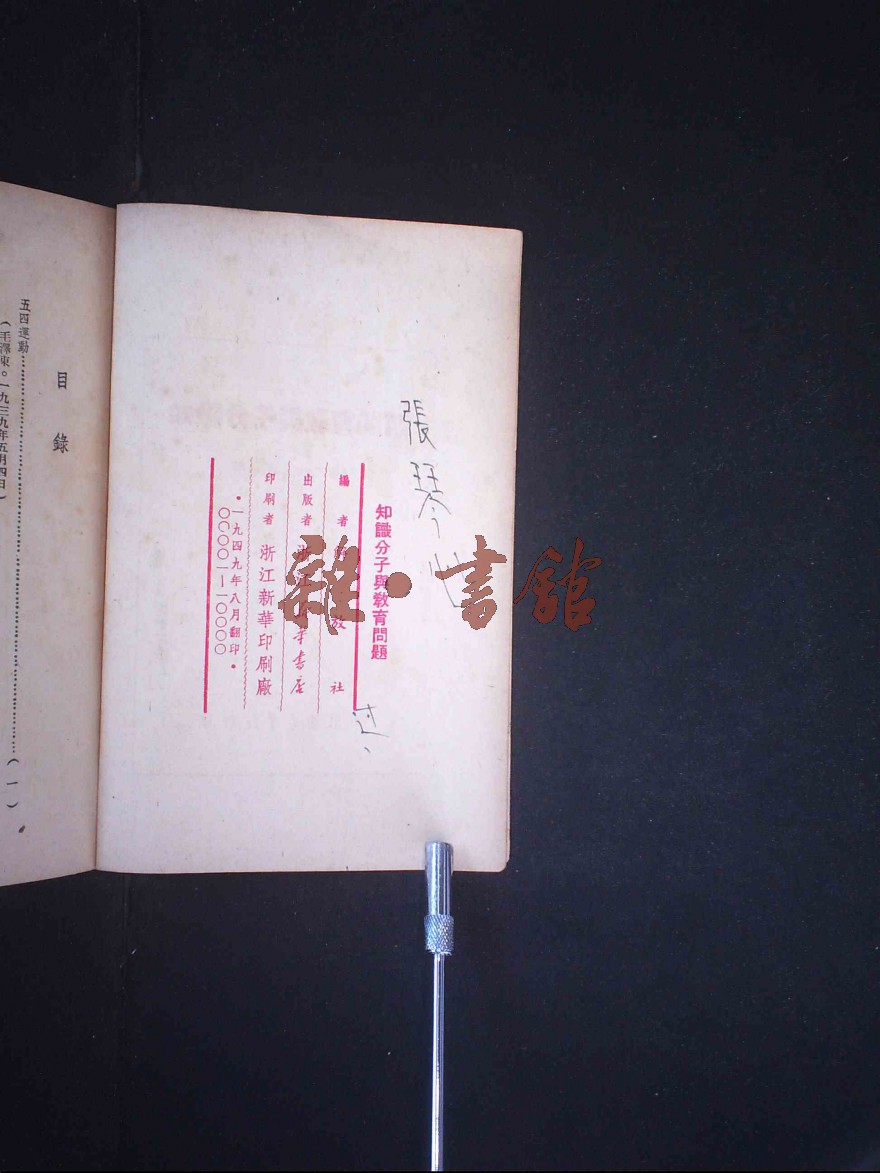 張琴
知識分子與教育問題
編者 教社
出版者 浙江書店
印刷者 浙江新華印刷廠
•一九四九年八月翻印•
〇〇〇〇一—一〇〇〇〇
过、
雜·書館
目錄
五四運動……………………(一)
(毛澤東。一九三九年五月四日)